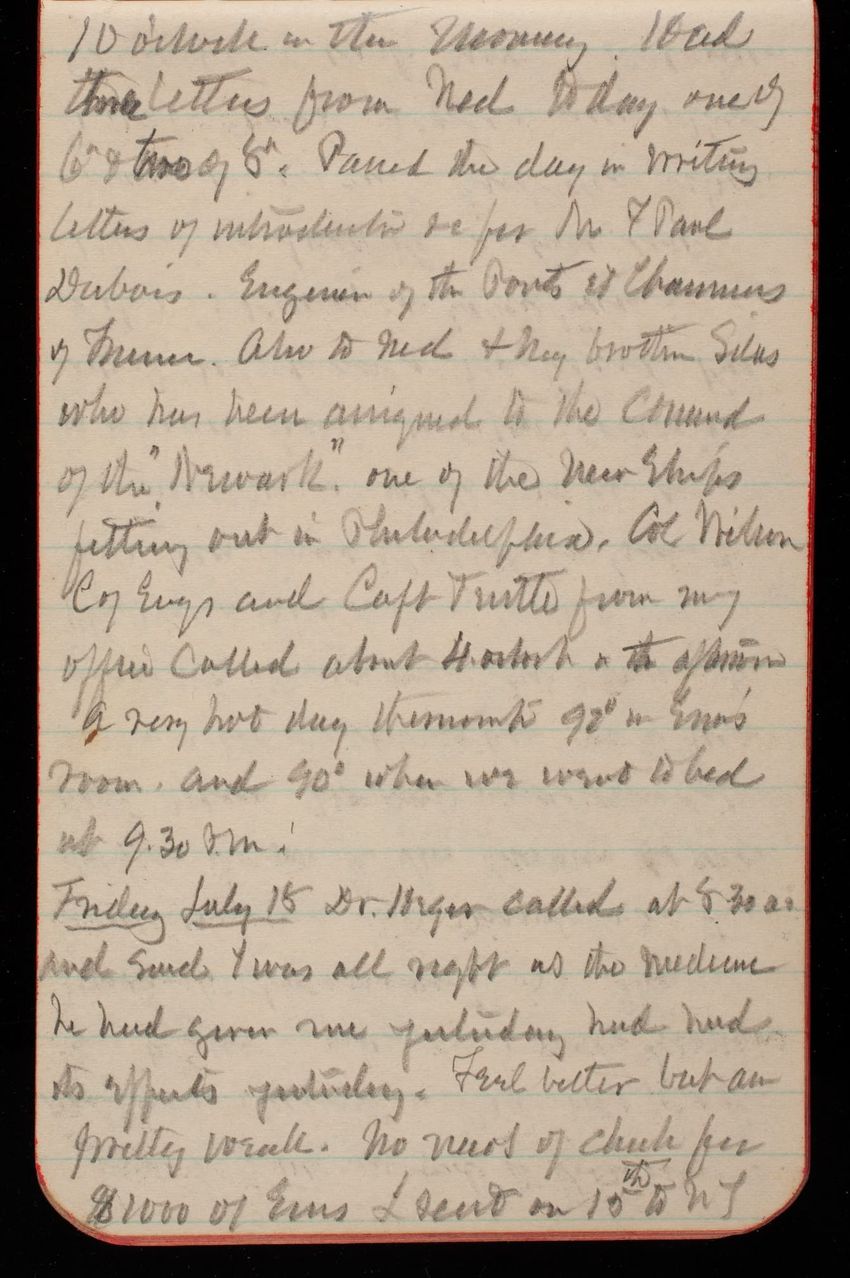 10 o'clock in the morning. Had
three letters from Ned today one of
6" & two of 8". Passed the day in writing
letters of introduction &c for M. F Paul
Dubois. Engineer of the Ponts et Chaussees
of France. Also to Ned & my brother Silas
who has been assigned to the Command
of the "Newark". one of the new Ships
fitting out in Philadelphia. Col Wilson
C of Engs and Capt Turtle from my
office called about 4 oclock in the afternoon
A very hot day thermomtr 92° in Ema's
room. and 90° when we went to bed
at 9.30 P.m.
Friday July 18 Dr. Heger called at 8 30 a.
and said I was all right as the medicine
he had given me yesterday had had
its effects yesterday. Feel better but am
pretty weak. No news of check for
$1000 of Ems I sent on 15th to NY